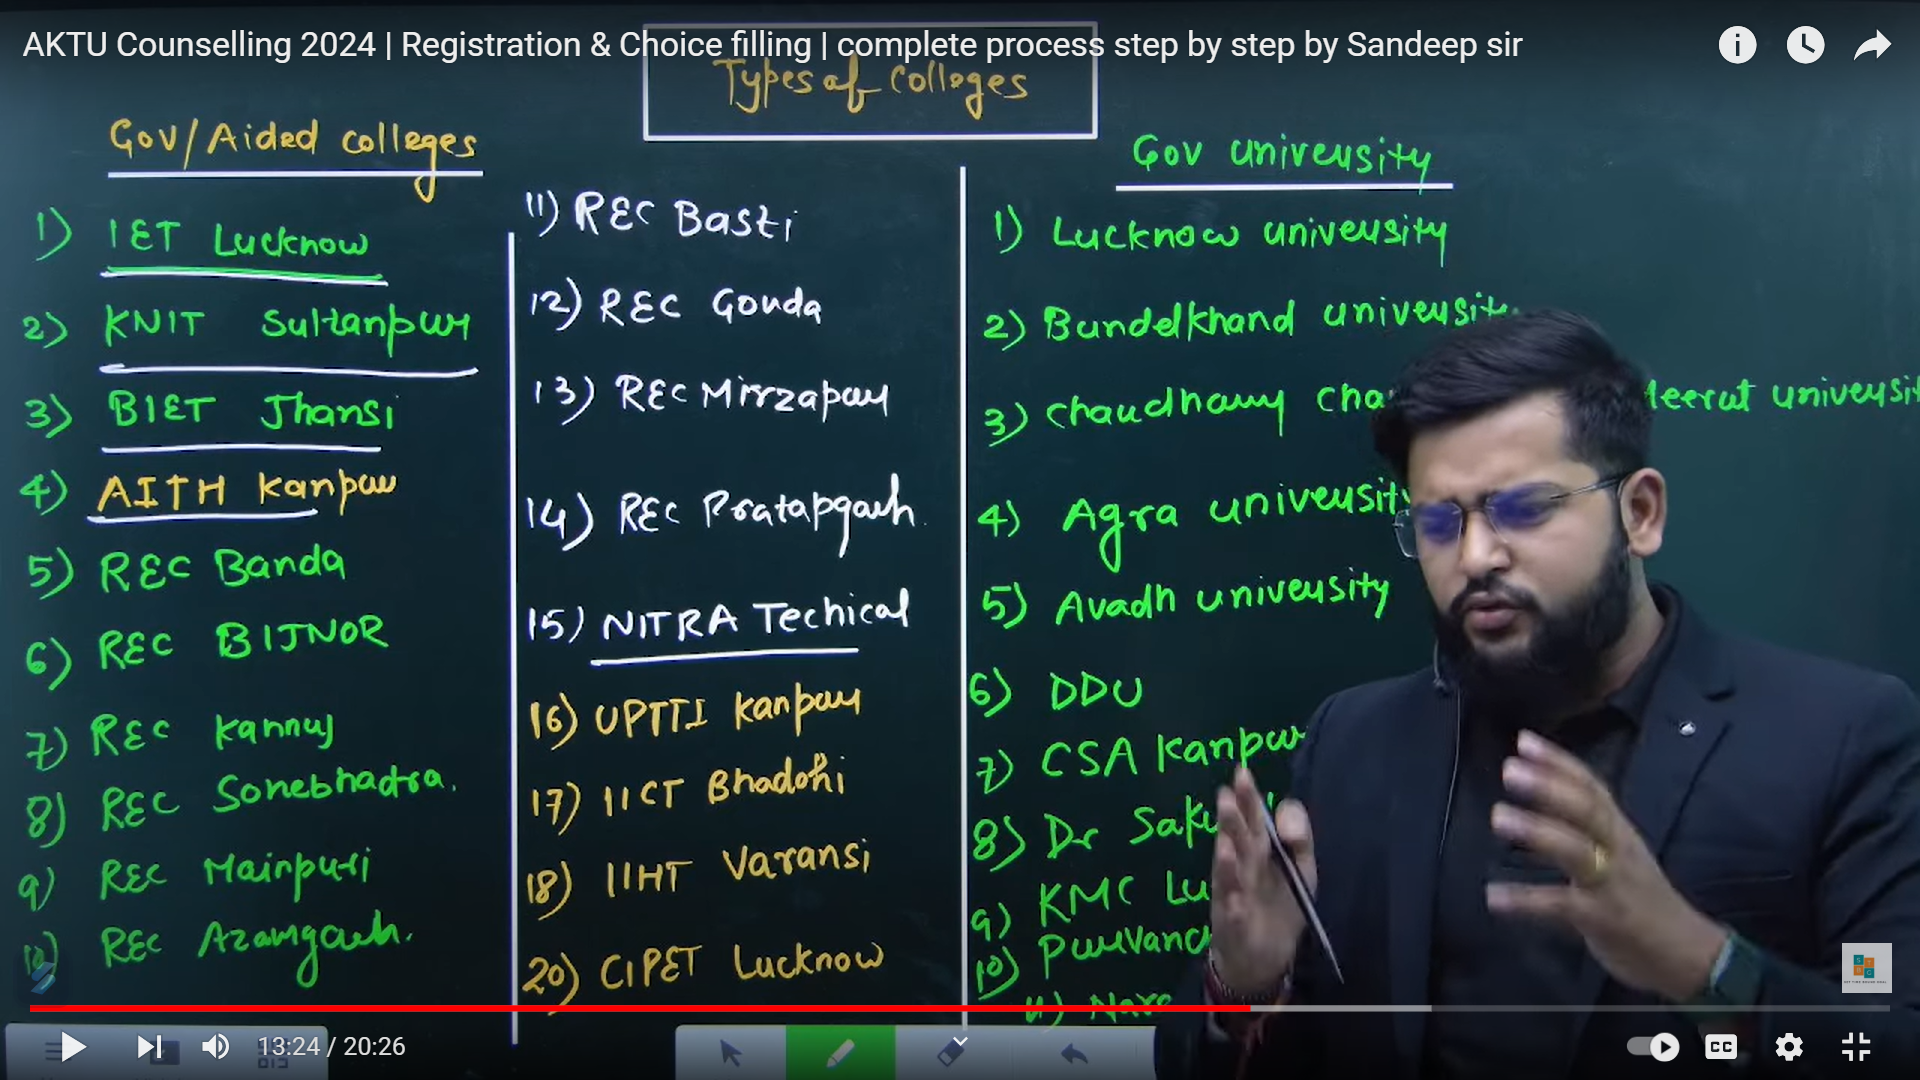 AKTU Counselling 2024 | Registration & Choice filling | complete process step by step by Sandeep sir
Types of Colleges
Gov/Aided colleges
1) IET Lucknow
2) KNIT Sultanpur
3) BIET Jhansi
4) AITH Kanpur
5) REC Banda
6) REC BIJNOR
7) REC Kannuj
8) REC Sonebhadra.
9) REC Mainpuri
10) REC Azamgarh.
11) REC Basti
12) REC Gonda
13) REC Mirzapur
14) REC Pratapgarh.
15) NITRA Techical
16) UPTTI Kanpur
17) IICT Bhadohi
18) IIHT Varansi
20) CIPET Lucknow
Gov university
1) Lucknow university
2) Bundelkhand university
3) Chaudhary Cha
4) Agra university
5) Avadh university
6) DDU
7) CSA Kanpur
8) Dr Saku
9) KMC Lu
10) Purvanc
11) Nare
13:24 / 20:26
CC